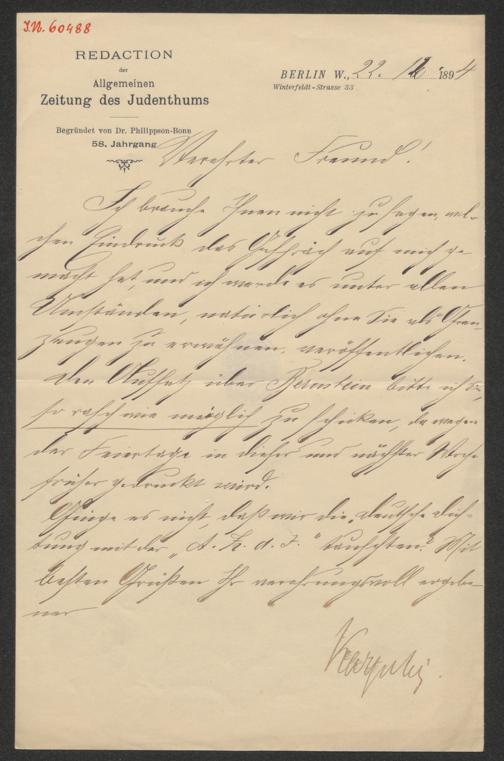 I.N. 60488
REDACTION
der
Allgemeinen
Zeitung des Judenthums
Begründet von Dr. Philippson-Bonn
58. Jahrgang
BERLIN W., 22. 12 1894
Winterfeldt-Strasse 33
Verehrter Freund!
Ich brauche Ihnen nicht zu sagen, wel-
chen Eindruck das Gespräch auf mich ge-
macht hat, und ich werde es unter allen
Umständen, natürlich ohne Sie als
zu erwähnen, veröffentlichen.
Den Aufsatz über Bernstein bitte ich
so rasch wie möglich zu schicken, da wegen
der Feiertage in dieser und nächster Woche
früher gedruckt wird.
Ginge es nicht, daß wir die deutsche Dich-
tung mit der „A. Z. d. J." tauschten? Mit
besten Grüßen Ihr verehrungsvoll ergebe-
ner
Karpeles.